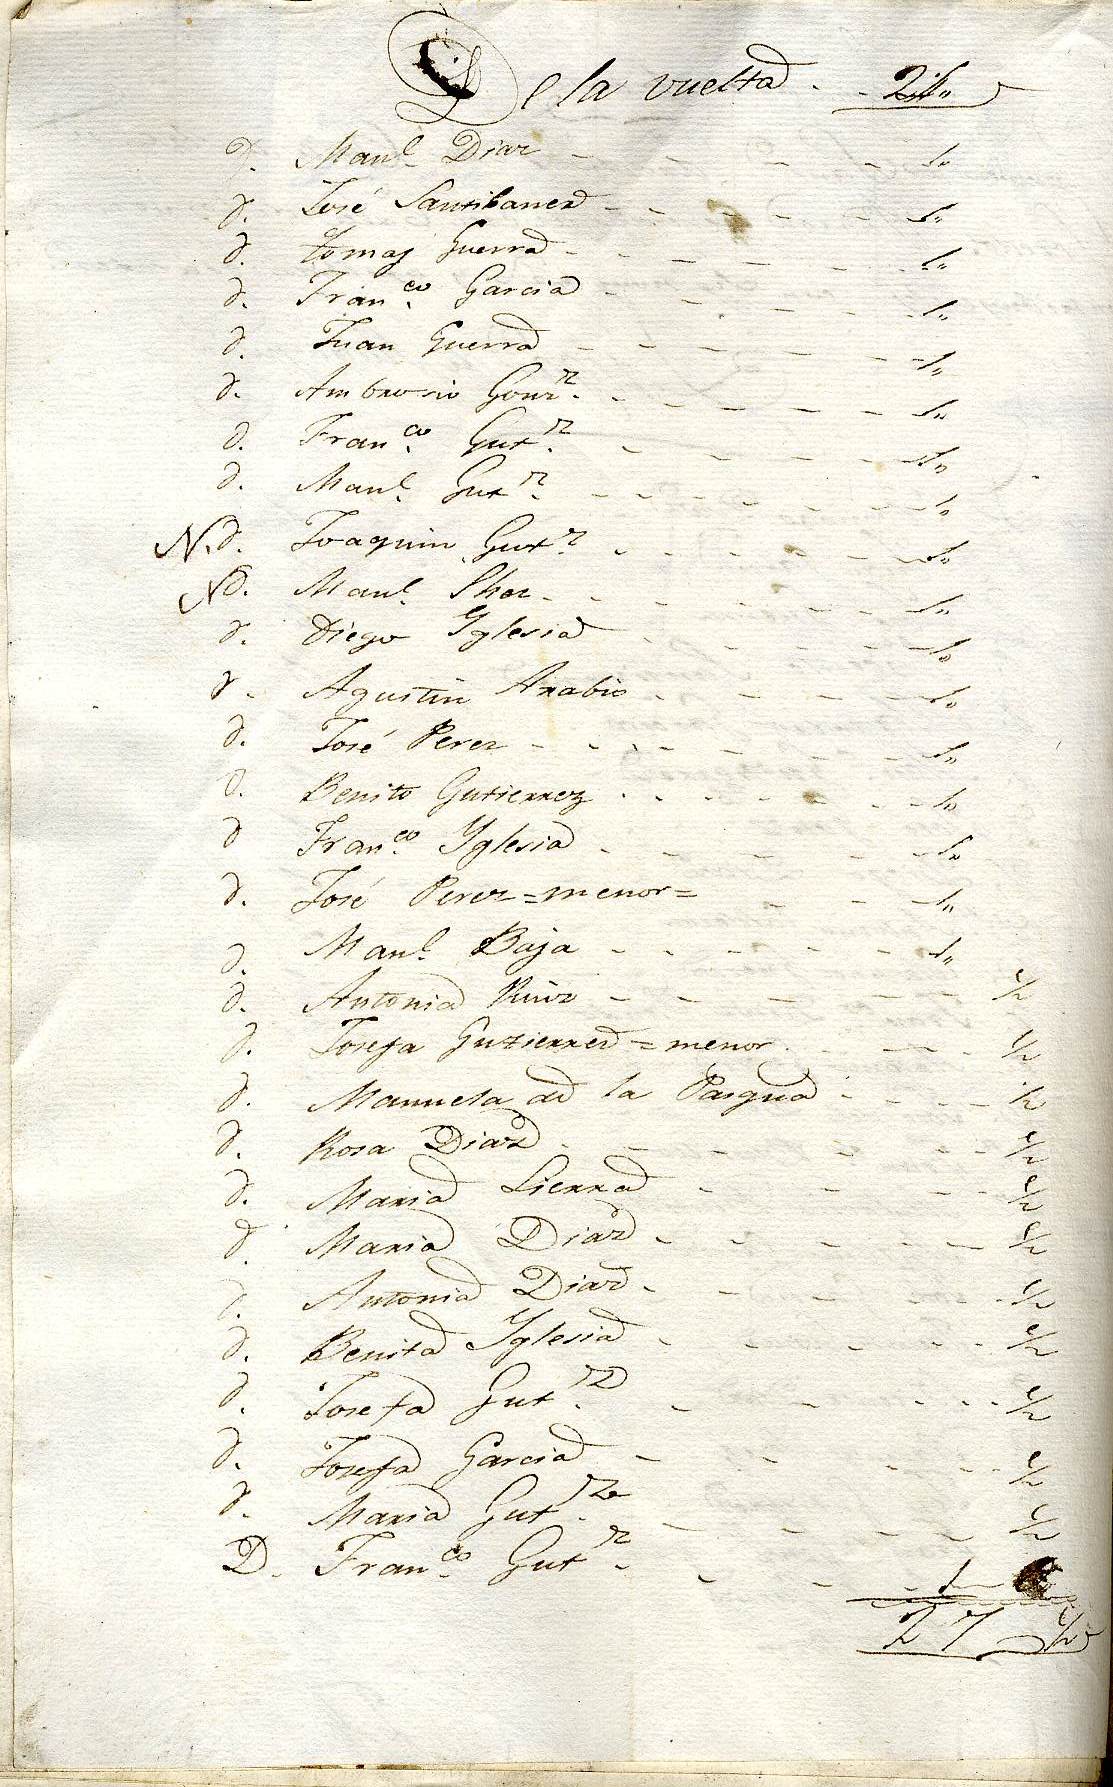 De la vuelta
d. Manl. Diaz - - - - 1„
d. José Santibanez - - - - 1„
d. tomas Guerra - - - - 1„
d. Franco. Garcia - - - - 1„
d. Juan Guerra - - - - 1„
d. Ambrosio Gonz. - - - - 1„
d. Franco. Gutz. - - - - 1„
d. Manl. Gutz. - - - - 1„
N. d. Joaquin Gutz. - - - - 1„
N d. Manl. Shez - - - - 1„
d. Diego Yglesia - - - - 1„
d. Agustin Arabio - - - - 1„
d. José Perez - - - - 1„
d. Benito Gutierrez - - - - 1„
d Franco. Yglesia - - - - 1„
d. José Perez = menor = - - - 1„
d. Manl. Baja - - - - 1„
d. Antonia Ruiz - - - - 1/2
d. Josefa Gutierrez = menor - - - 1/2
d. Manuela de la Pasqua - - - - 1/2
d. Rosa Diaz - - - - 1/2
d. Maria Sierra - - - - 1/2
d. Maria Diaz - - - - 1/2
d. Antonia Diaz - - - - 1/2
d. Benita Yglesia - - - - 1/2
d. Josefa Gutz. - - - - 1/2
d. Josefa Garcia - - - - 1/2
d. Maria Gutz. - - - - 1/2
D. Franco. Gutz. - - - 1
27 1/2